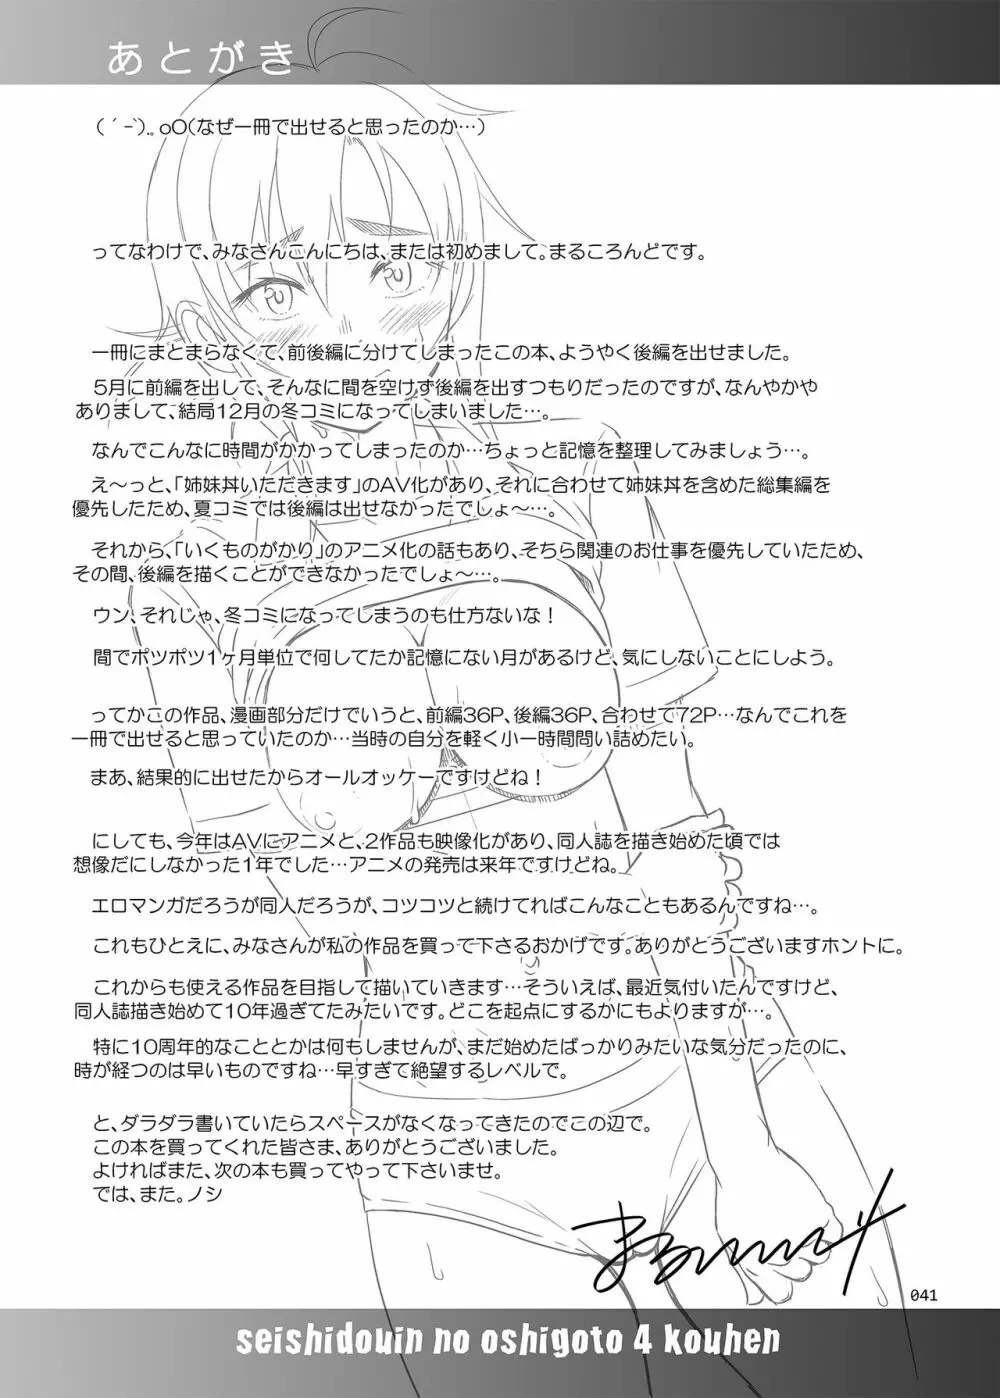 あとがき
(´-`).｡oO(なぜ一冊で出せると思ったのか…)
ってなわけで、みなさんこんにちは、または初めまして。まるころんどです。
一冊にまとまらなくて、前後編に分けてしまったこの本、ようやく後編を出せました。
5月に前編を出して、そんなに間を空けず後編を出すつもりだったのですが、なんやかや
ありまして、結局12月の冬コミになってしまいました…。
なんでこんなに時間がかかってしまったのか…ちょっと記憶を整理してみましょう…。
え～っと、「姉妹丼いただきます」のAV化があり、それに合わせて姉妹丼を含めた総集編を
優先したため、夏コミでは後編は出せなかったでしょ～…。
それから、「いくものがかり」のアニメ化の話もあり、そちら関連のお仕事を優先していたため、
その間、後編を描くことができなかったでしょ～…。
ウン、それじゃ、冬コミになってしまうのも仕方ないな！
間でポツポツ1ヶ月単位で何してたか記憶にない月があるけど、気にしないことにしよう。
ってかこの作品、漫画部分だけでいうと、前編36P、後編36P、合わせて72P…なんでこれを
一冊で出せると思っていたのか…当時の自分を軽く小一時間問い詰めたい。
まあ、結果的に出せたからオールオッケーですけどね！
にしても、今年はAVにアニメと、2作品も映像化があり、同人誌を描き始めた頃では
想像だにしなかった1年でした…アニメの発売は来年ですけどね。
エロマンガだろうが同人だろうが、コツコツと続けてればこんなこともあるんですね…。
これもひとえに、みなさんが私の作品を買って下さるおかげです。ありがとうございますホントに。
これからも使える作品を目指して描いていきます…そういえば、最近気付いたんですけど、
同人誌描き始めて10年過ぎてたみたいです。どこを起点にするかにもよりますが…。
特に10周年的なこととかは何もしませんが、まだ始めたばっかりみたいな気分だったのに、
時が経つのは早いものですね…早すぎて絶望するレベルで。
と、ダラダラ書いていたらスペースがなくなってきたのでこの辺で。
この本を買ってくれた皆さま、ありがとうございました。
よければまた、次の本も買ってやって下さいませ。
では、また。ノシ
041
seishidouin no oshigoto 4 kouhen